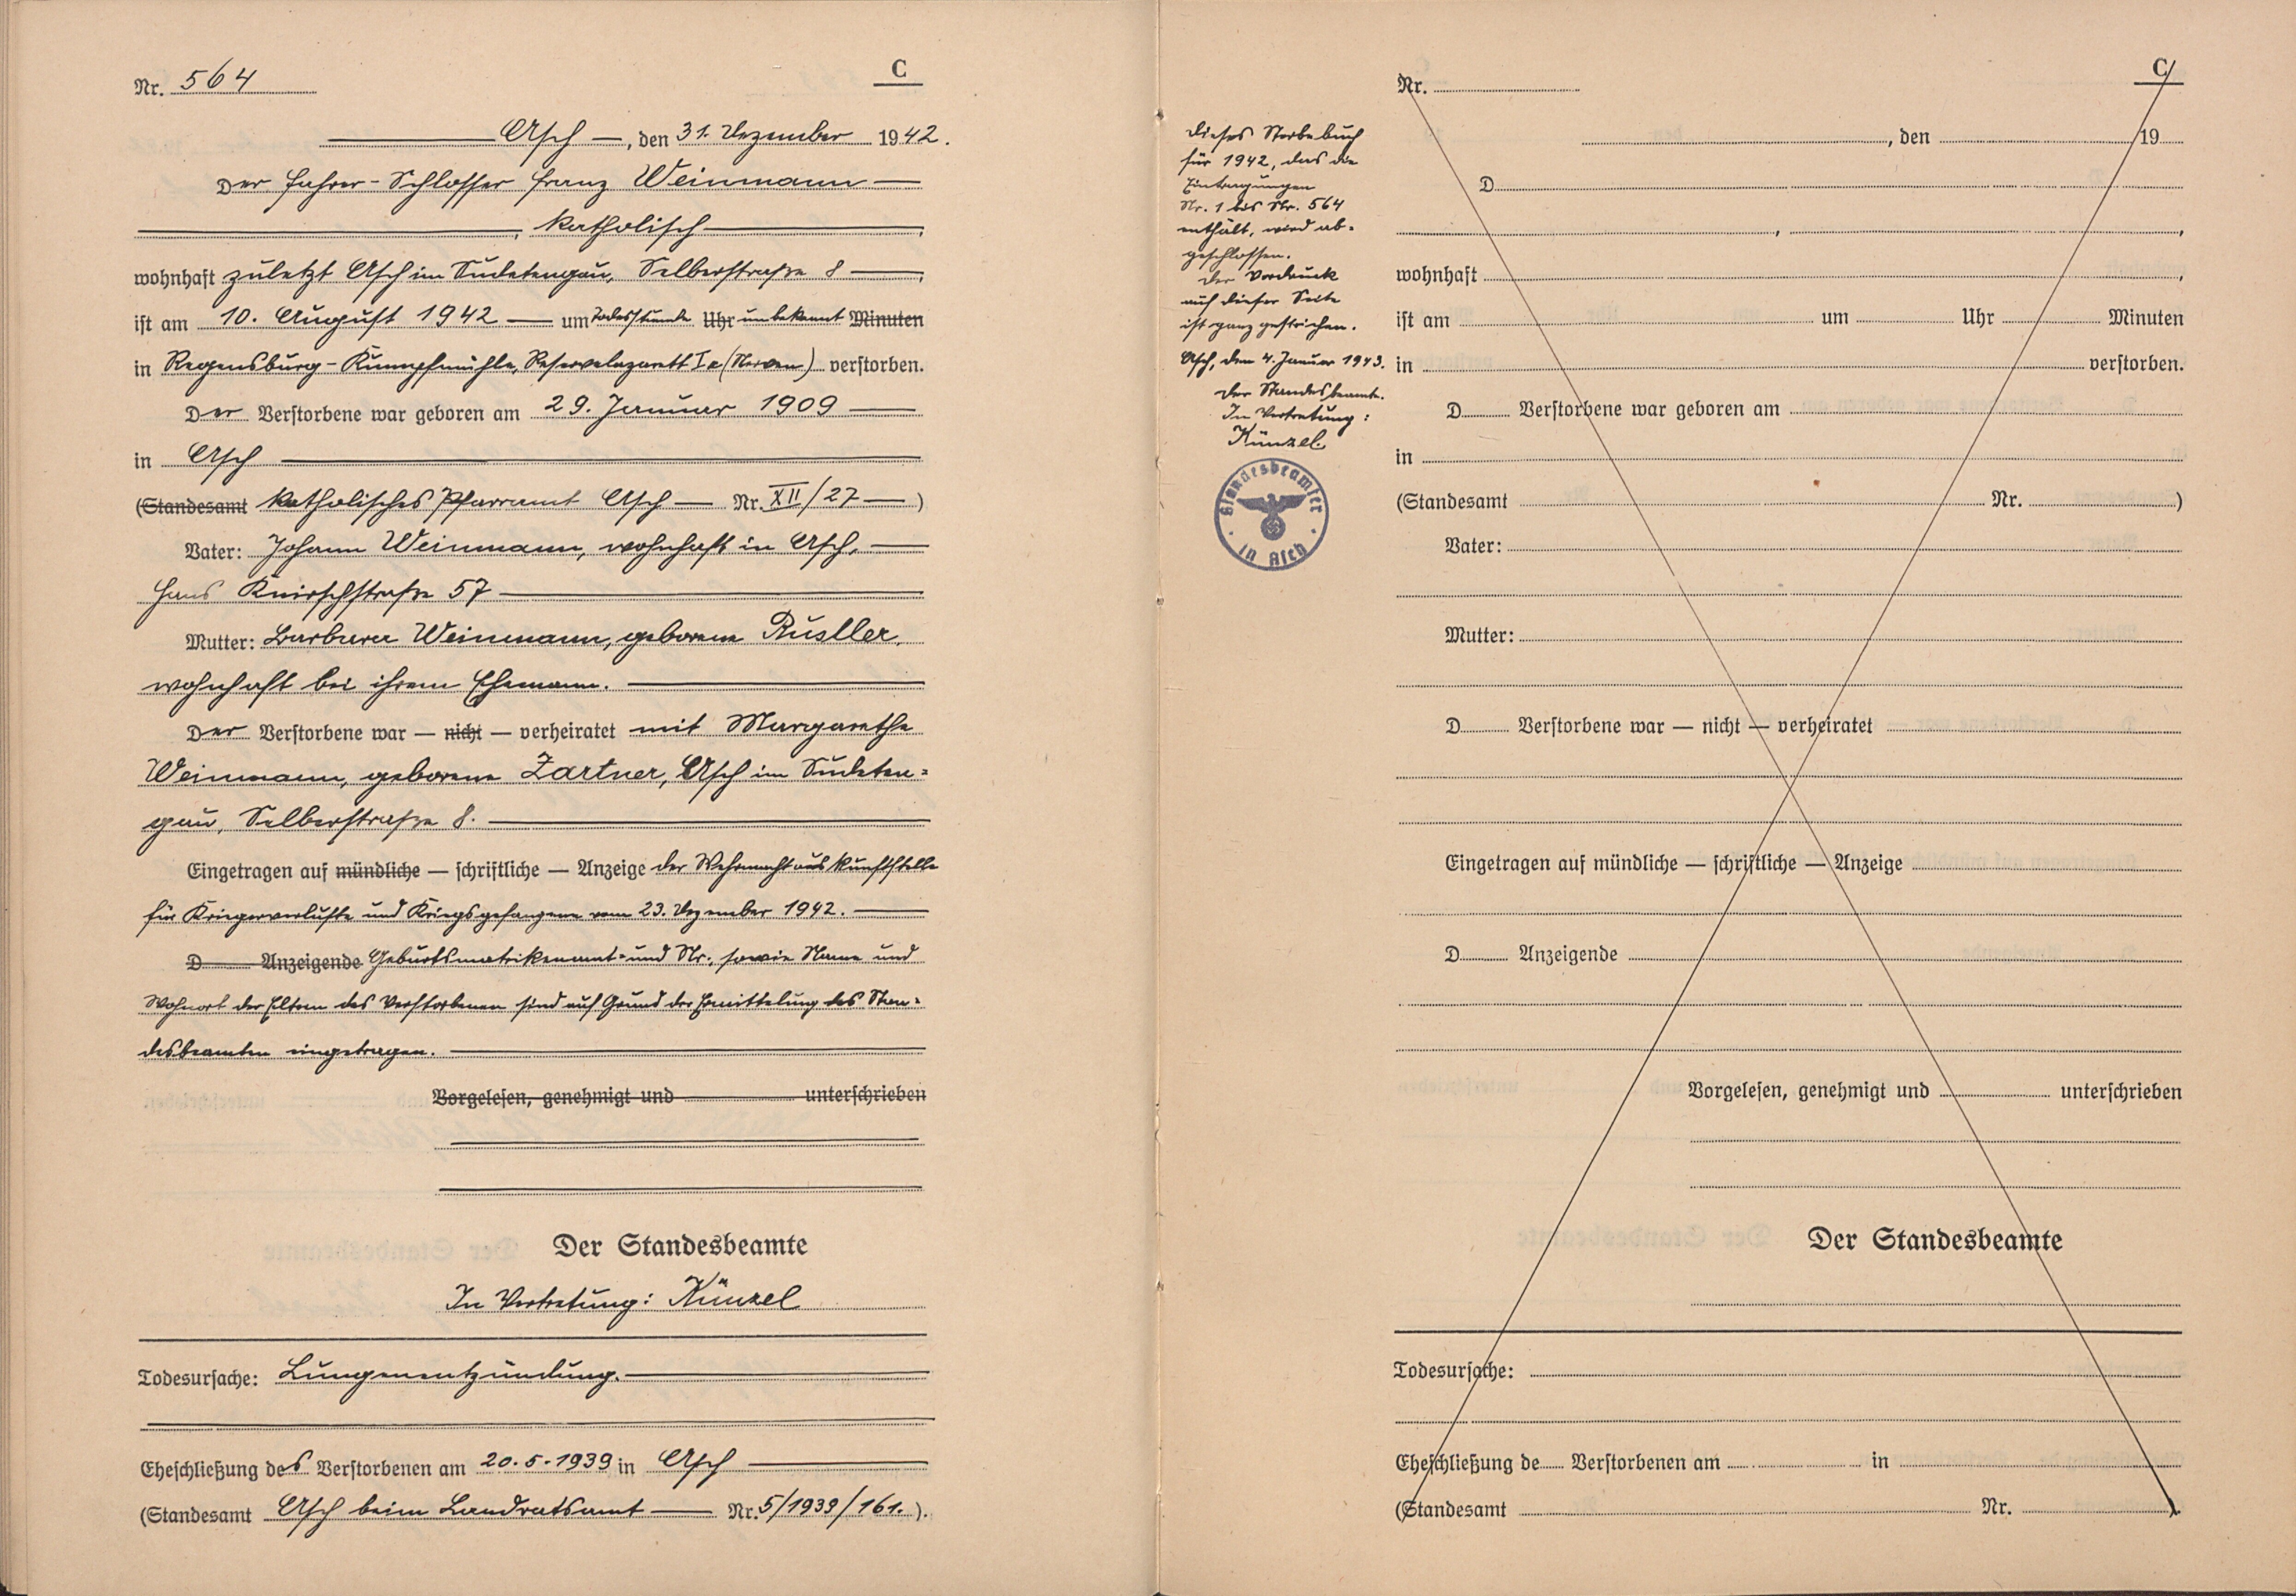 Nr. 564
C
Asch, den 31. Dezember 1942.
Der Fahrer-Schlosser Franz Weinmann
, katholisch,
wohnhaft zuletzt Asch im Sudetengau, Selberstraße 8,
ist am 10. August 1942 um Todesstunde Uhr unbekannt Minuten
in Regensburg-Kumpfmühle, Reservelazarett I a (Nerven) verstorben.
Der Verstorbene war geboren am 29. Januar 1909
in Asch
(Standesamt katholisches Pfarramt Asch Nr. XII/27)
Vater: Johann Weinmann, wohnhaft in Asch,
Hans Knirschstraße 57
Mutter: Barbara Weinmann, geborene Rustler,
wohnhaft bei ihrem Ehemann.
Der Verstorbene war — nicht — verheiratet mit Margarethe
Weinmann, geborene Zartner, Asch im Sudeten=
gau, Selberstraße 8.
Eingetragen auf mündliche — schriftliche — Anzeige der Wehrmachtauskunftstelle
für Kriegerverluste und Kriegsgefangene vom 23. Dezember 1942.
D Anzeigende Geburtsmatrikenamt und Nr., sowie Name und
Wohnort der Eltern des Verstorbenen sind auf Grund der Ermittelung des Stan=
desbeamten eingetragen.
Vorgelesen, genehmigt und unterschrieben
Der Standesbeamte
In Vertretung: Künzel
Todesursache: Lungenentzündung.
Eheschließung des Verstorbenen am 20.5.1939 in Asch
(Standesamt Asch beim Landratsamt Nr. 5/1939/161.).
Dieses Sterbebuch
für 1942, das die
Eintragungen
Nr. 1 bis Nr. 564
enthält, wird ab=
geschlossen.
Der Vordruck
auf dieser Seite
ist ganz gestrichen.
Asch, den 4. Januar 1943.
Der Standesbeamte.
In Vertretung:
Künzel.
Standesbeamter
in Asch
Nr.
C
, den 19
D
,
wohnhaft ,
ist am um Uhr Minuten
in verstorben.
D Verstorbene war geboren am
in
(Standesamt Nr. )
Vater:
Mutter:
D Verstorbene war — nicht — verheiratet
Eingetragen auf mündliche — schriftliche — Anzeige
D Anzeigende
Vorgelesen, genehmigt und unterschrieben
Der Standesbeamte
Todesursache:
Eheschließung de Verstorbenen am in
(Standesamt Nr. ).